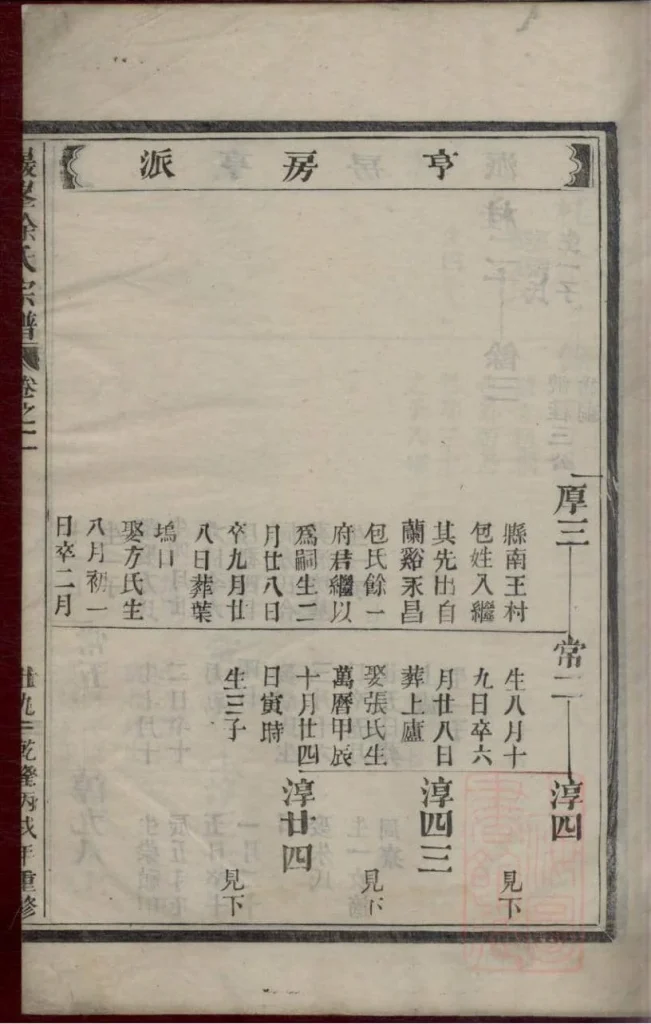 亨房派
厚三
縣南王村
包姓入繼
其先出自
蘭谿永昌
包氏餘一
府君繼以
爲嗣生二
月廿八日
卒九月廿
八日葬葉
塢口
娶方氏生
八月初一
日卒二月
常二
生八月十
九日卒六
月廿八日
葬上廬
娶張氏生
萬曆甲辰
十月廿四
日寅時
生三子
淳四
見下
淳四三
見下
淳廿四
見下
峯徐氏宗譜
卷之
乾隆丙戌年重修